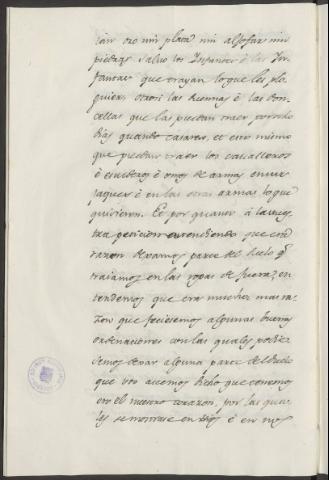 lan oro nin plata nin aljofar nin
piedras salvo los Infantes è las In-
fantas que trayan loque les plo-
guiere, otrosi las Duennas è las Don-
cellas que las puedan traer por ocho
dias quando casaren, et eso mismo
que puedan traer los cavalleros
è escuderos è omes de armas en sus
jaques è en las otras armas loque
quisieren. Et por quanto à la vues-
tra peticion entendiendo que con
razon dexamos parte del duelo q.
traiamos en las ropas de fuera, en-
tendemos que era mucho mas ra-
zon que feciesemos algunas buenas
ordenaciones con las quales podie-
semos dexar alguna parte del duelo
que vos avemos dicho que tenemos
en el nuestro corazon, por las qua-
les semostrase en Dios è en nos